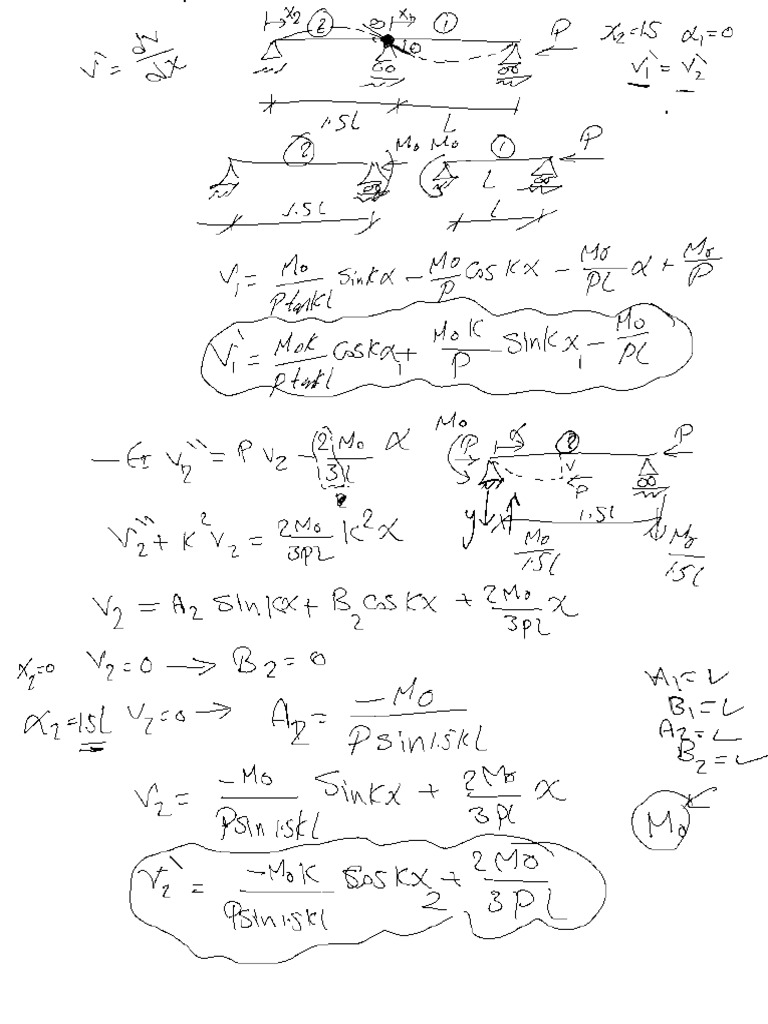 x₂ ② θ x₁ ① P x₂=1.5 x₁=0
v` = dv/dx θ v₁` = v₂`
1.5L L
② M₀ M₀ ① P
L
1.5L L
V₁ = M₀/(P tan kl) sin kx − M₀/P cos kx − M₀/(PL) x + M₀/P
V₁` = M₀k/(P tan kl) cos kx₁ + M₀k/P sin kx₁ − M₀/(PL)
M₀ P x ② P
−EI v₂`` = P v₂ − (2/3) M₀/L x
v P
y 1.5L
V₂`` + k² v₂ = 2M₀/(3PL) k² x
M₀/1.5L M₀/1.5L
V₂ = A₂ sin kx + B₂ cos kx + 2M₀/(3PL) x
x₂=0 V₂=0 → B₂ = 0
x₂=1.5L V₂=0 → A₂ = −M₀/(P sin 1.5kL)
A₁= ✓
B₁= ✓
A₂= ✓
B₂= ✓
V₂ = −M₀/(P sin 1.5kL) sin kx + 2M₀/(3PL) x
M₀
V₂` = −M₀k/(P sin 1.5kl) cos kx₂ + 2M₀/(3PL)